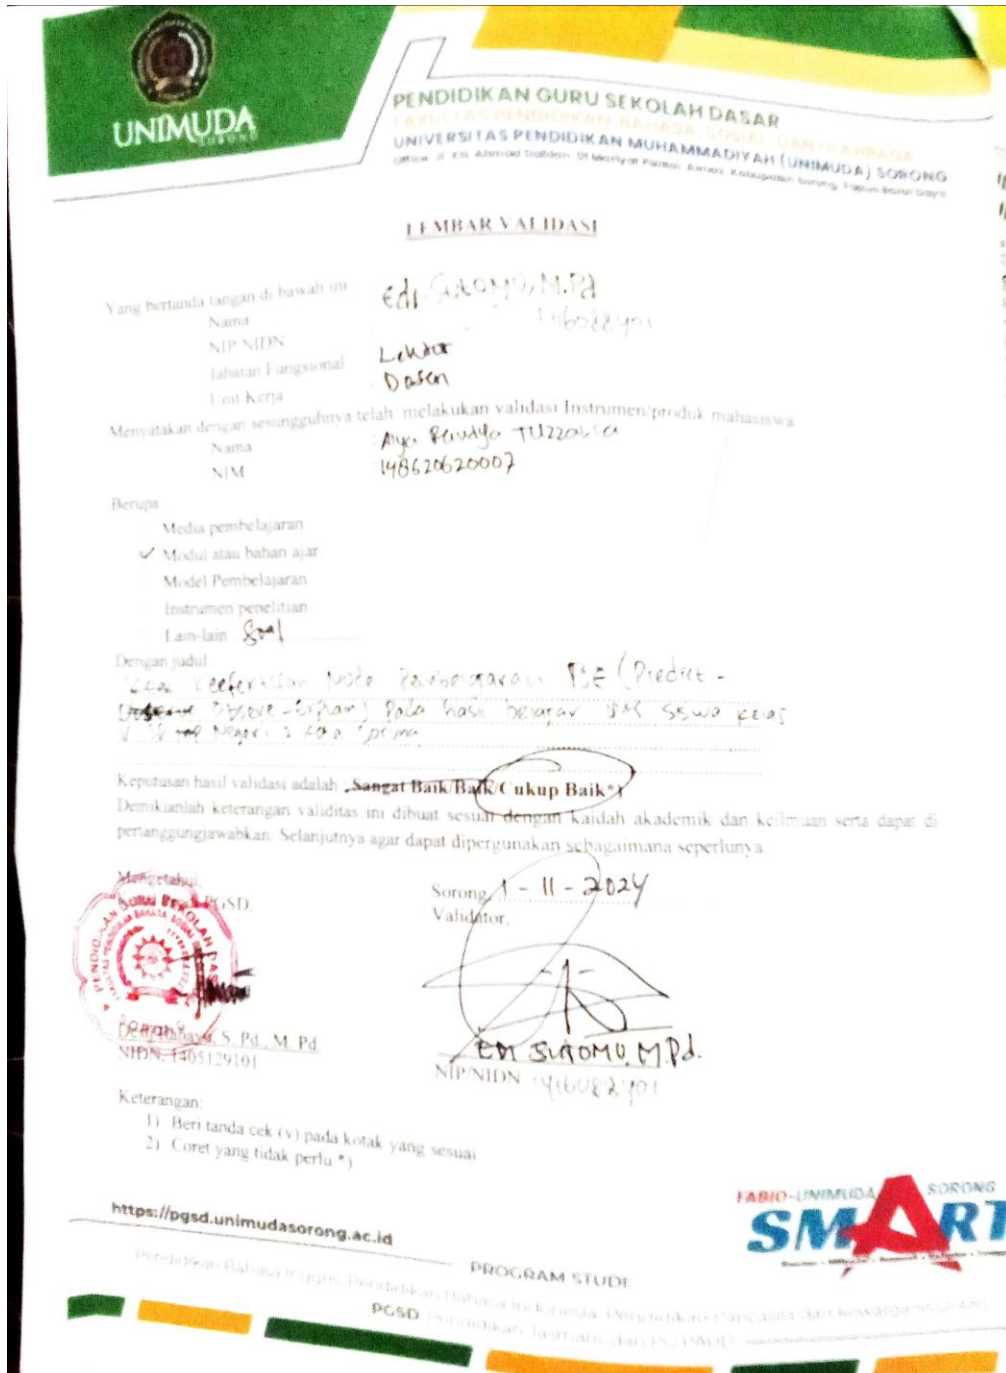 UNIMUDA
SORONG
PENDIDIKAN GURU SEKOLAH DASAR
FAKULTAS PENDIDIKAN BAHASA, SOSIAL, DAN OLAHRAGA
UNIVERSITAS PENDIDIKAN MUHAMMADIYAH (UNIMUDA) SORONG
Office: Jl. KH. Ahmad Dahlan, 01 Mariyat Pantai, Aimas, Kabupaten Sorong, Papua Barat Daya
LEMBAR VALIDASI
Yang bertanda tangan di bawah ini
Nama Edi Sutomo, M.Pd
NIP/NIDN
Jabatan Fungsional Lektor
Unit Kerja Dosen
Menyatakan dengan sesungguhnya telah melakukan validasi Instrumen/produk mahasiswa
Nama
NIM 148620620007
Berupa
Media pembelajaran
✓ Modul atau bahan ajar
Model Pembelajaran
Instrumen penelitian
Lain-lain Soal
Dengan judul :
(Predict -
Pada hasil belajar siswa kelas
V
Keputusan hasil validasi adalah : Sangat Baik/Baik/Cukup Baik*)
Demikianlah keterangan validitas ini dibuat sesuai dengan kaidah akademik dan keilmuan serta dapat di
pertanggungjawabkan. Selanjutnya agar dapat dipergunakan sebagaimana seperlunya.
Mengetahui,
PGSD,
PENDIDIKAN GURU SEKOLAH DASAR
SORONG
S. Pd., M. Pd.
NIDN. 1405129101
Sorong, 1 - 11 - 2024
Validator,
EDI SUTOMO, M.Pd.
NIP/NIDN
Keterangan:
1) Beri tanda cek (v) pada kotak yang sesuai
2) Coret yang tidak perlu *)
https://pgsd.unimudasorong.ac.id
FABIO-UNIMUDA SORONG
SMART
PROGRAM STUDI:
Pendidikan Bahasa Inggris, Pendidikan Bahasa Indonesia, Pendidikan Pancasila dan Kewarganegaraan,
PGSD, Pendidikan Jasmani, dan PG-PAUD